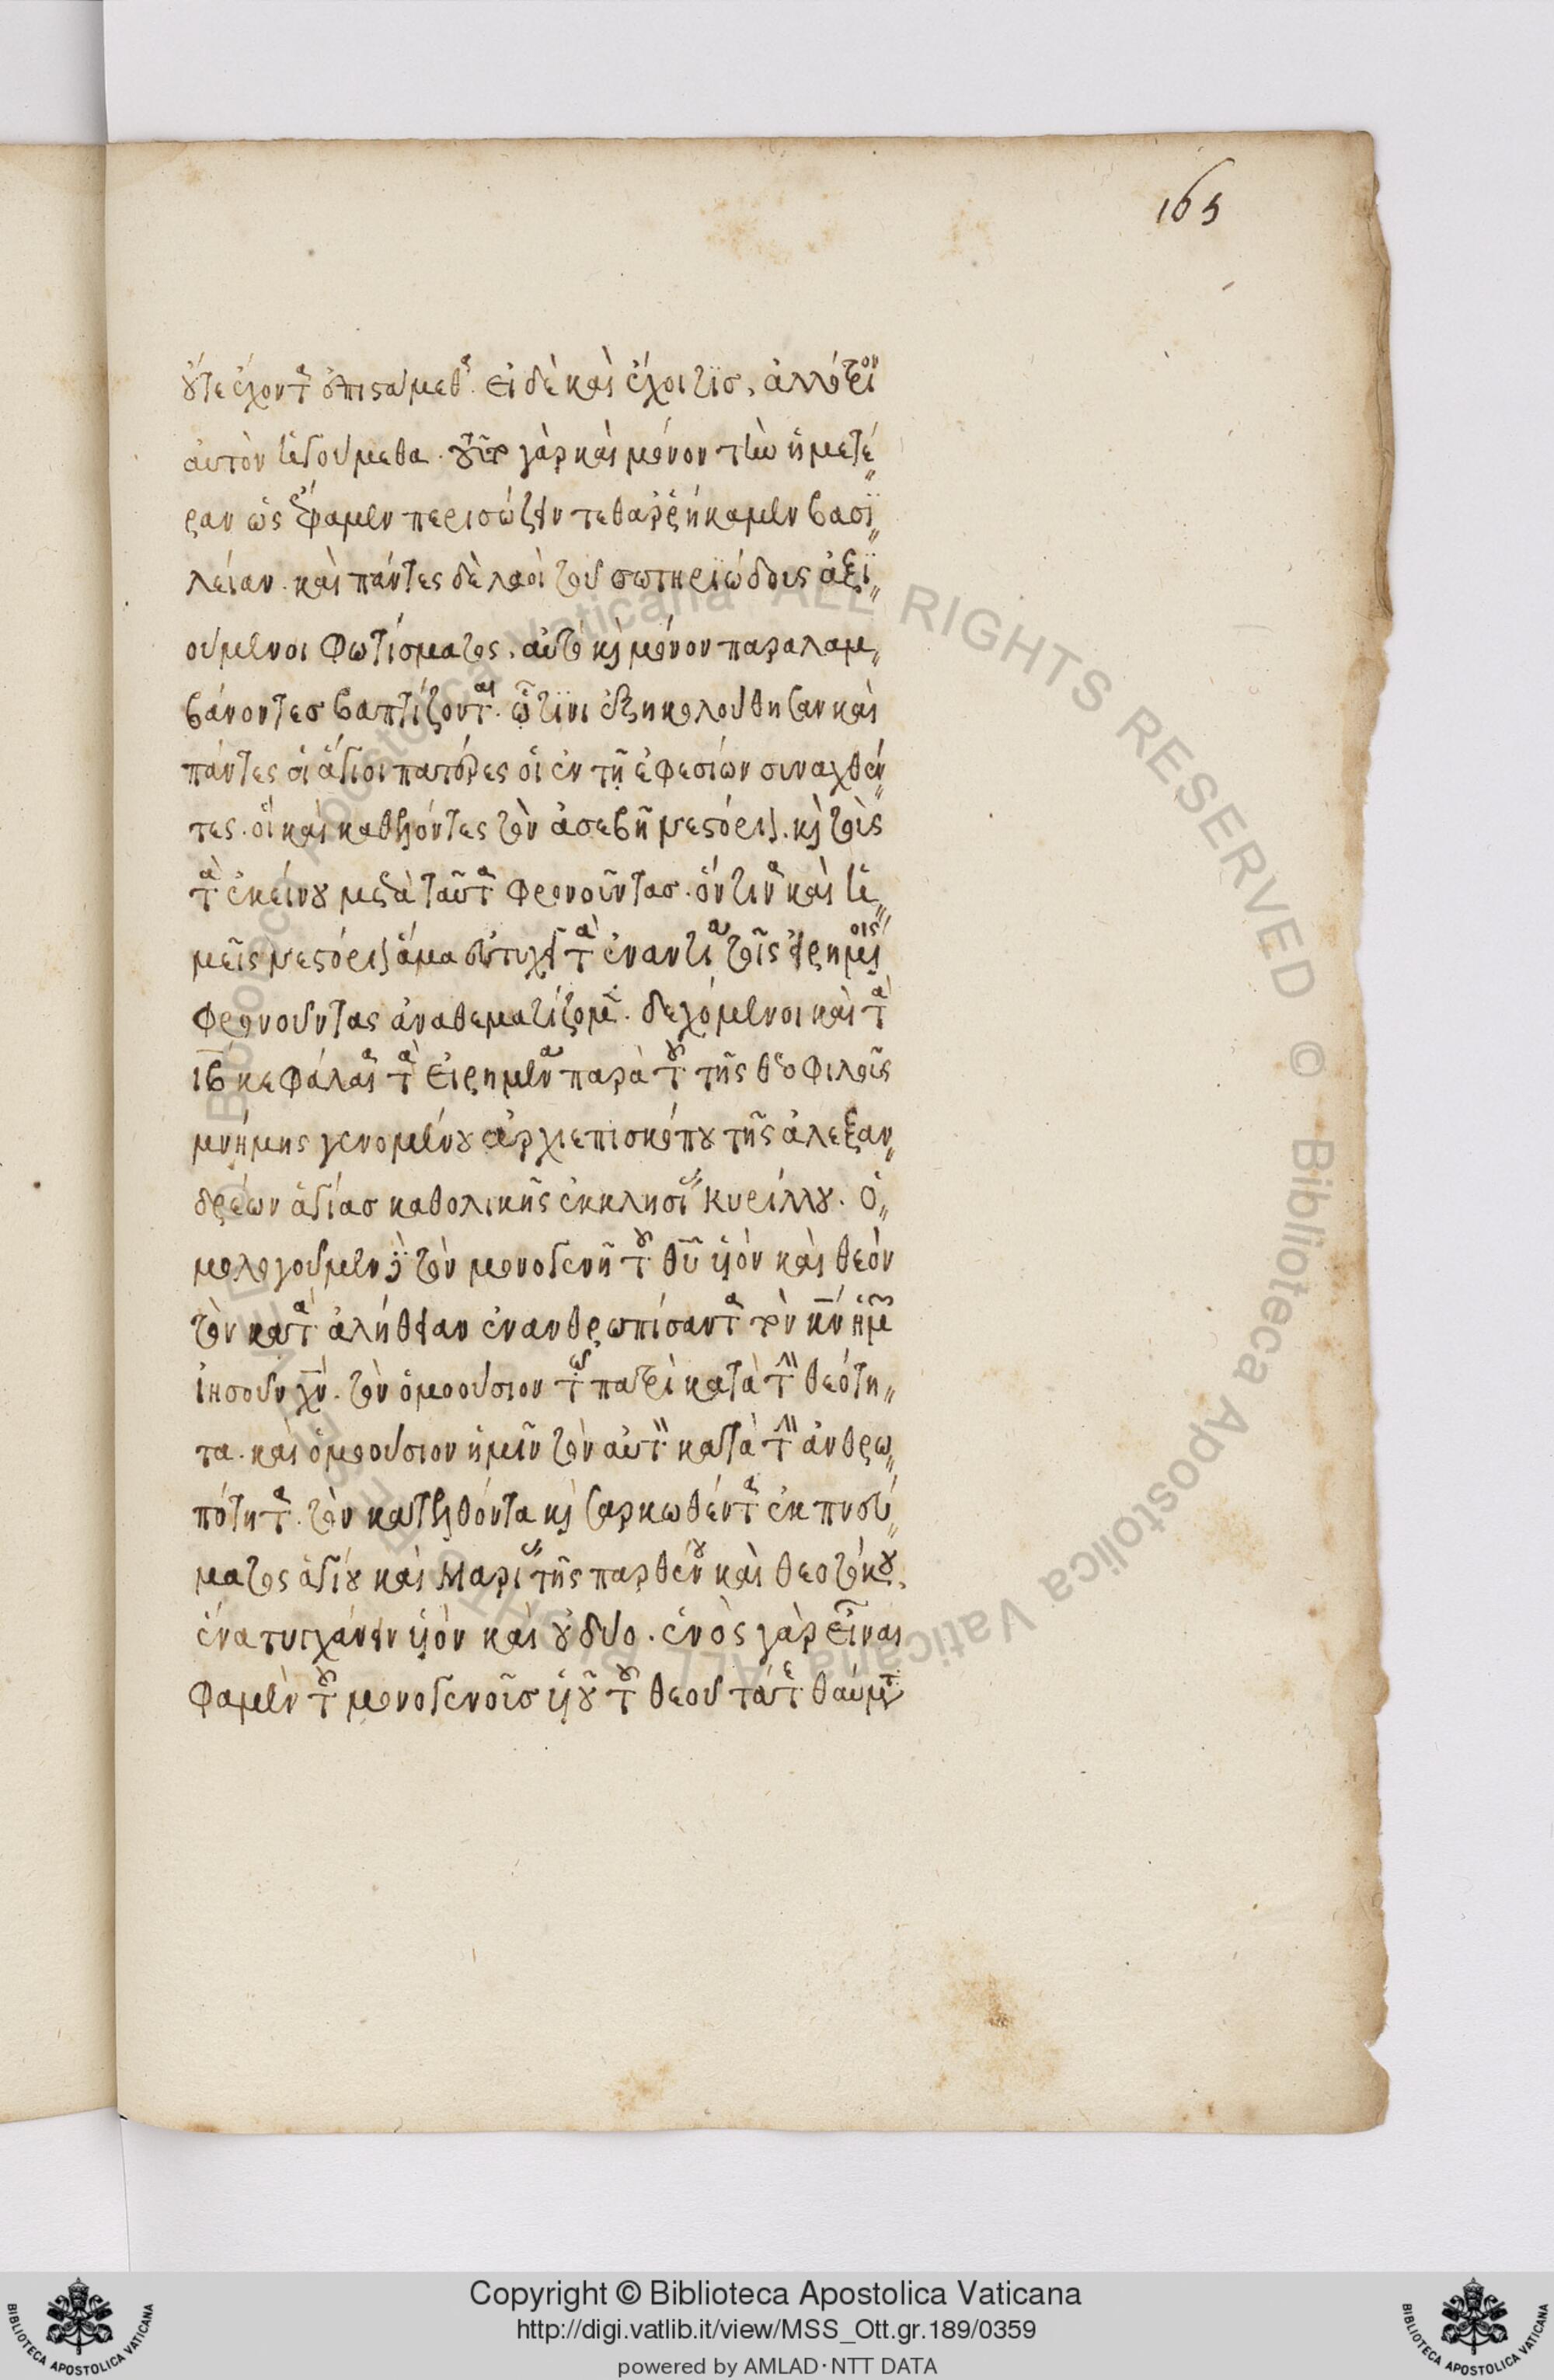 165
οὔτε ἔχοντα ἐπιστάμεθα. εἰ δὲ καὶ ἔχοι τϊσ, ἀλλότριον
αὐτὸν ἡγούμεθα. τοῦτο γὰρ καὶ μόνον τὴν ἡμετέ〃
ραν ὡς ἔφαμεν περισώζειν τεθαρῥήκαμεν βασϊ〃
λείαν. καὶ πάντες δὲ λαοὶ τοῦ σωτηριώδους ἀξϊ〃
ούμενοι φωτίσματος, αὐτὸ καὶ μόνον παραλαμ〃
βάνοντεσ βαπτίζονται. ᾧτϊνι ἐξηκολούθησαν καὶ
πάντες οἱ ἅγιοι πατέρες οἱ ἐν τῇ ἐφεσίων συναχθέν〃
τες. οἳ καὶ καθελόντες τὸν ἀσεβῆ νεστόριον. καὶ τοὺς
τὰ ἐκείνου μετὰ ταῦτα φρονοῦντασ. ὅντινα καὶ ἡ〃
μεῖς νεστόριον ἅμα εὐτυχεῖ τὰ ἐναντία τοῖς εἰρημένοις
φρονοῦντας ἀναθεματίζομεν. δεχόμενοι καὶ τὰ
ιβ κεφάλαια τὰ εἰρημένα παρὰ τοῦ τῆς θεοφιλοῦς
μνήμης γενομένου ἀρχιεπισκόπου τῆς ἀλεξαν〃
δρέων ἁγίασ καθολικῆς ἐκκλησίας κυρίλλου. ὁ〃
μολογοῦμεν δὲ τὸν μονογενῆ τοῦ θῦ υἱὸν καὶ θεὸν
τὸν κατὰ ἀλήθειαν ἐνανθρωπίσαντα τὸν κν ἡμῶν
ἰησοῦν χν. τὸν ὁμοούσιον τῷ πατρὶ κατὰ τὴν θεότη〃
τα. καὶ ὁμοούσιον ἡμῖν τὸν αὐτὸν κατὰ τὴν ἀνθρω〃
πότητα. τὸν κατελθόντα καὶ σαρκωθέντα ἐκ πνεύ〃
ματος ἁγίου καὶ Μαρίας τῆς παρθένου καὶ θεοτόκου,
ἕνα τυγχάνειν υἱὸν καὶ οὐ δυο. ἑνὸς γὰρ εἶναι
φαμὲν τοῦ μονογενοῦσ υἱοῦ τοῦ θεοῦ τά τε θαύματα
Copyright © Biblioteca Apostolica Vaticana
http://digi.vatlib.it/view/MSS_Ott.gr.189/0359
powered by AMLAD·NTT DATA
BIBLIOTECA APOSTOLICA VATICANA
BIBLIOTECA APOSTOLICA VATICANA
© Biblioteca Apostolica Vaticana ALL RIGHTS RESERVED © Biblioteca Apostolica Vaticana ALL RIGHTS RESERVED